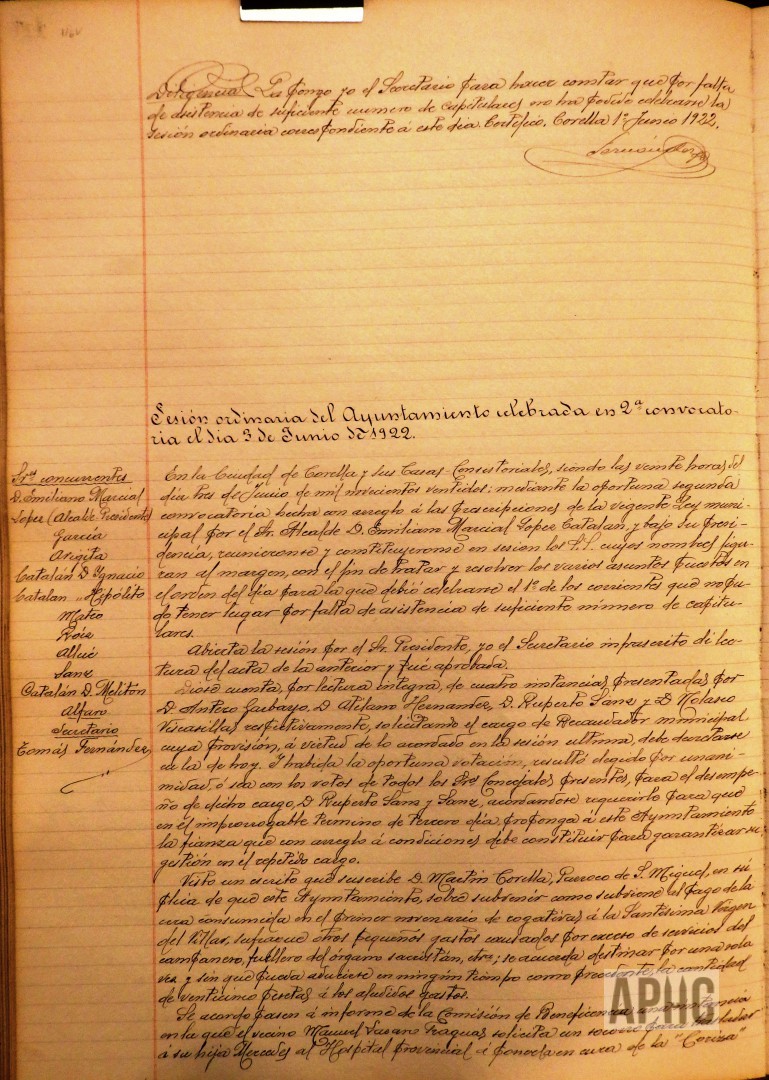 Diligencia. La pongo yo el Secretario para hacer constar que por falta
de asistencia de suficiente numero de capitulares no ha podido celebrarse la
sesión ordinaria correspondiente á este dia. Certifico. Corella 1º Junio 1922.
Sesión ordinaria del Ayuntamiento celebrada en 2ª convocato-
ria el dia 3 de Junio de 1922.
Sres concurrentes
D. Emiliano Marcial
Lopez (Alcalde Presidente)
García
Arigita
Catalán D. Ignacio
Catalan " Hipólito
Mateo
Roiz
Allué
Sanz
Catalán D. Melitón
Alfaro
Secretario
Tomás Fernández
En la Ciudad de Corella y sus Casas Consistoriales, siendo las veinte horas del
dia tres de Junio de mil novecientos ventidos: mediante la oportuna segunda
convocatoria hecha con arreglo á las prescripciones de la vigente Ley muni-
cipal por el Sr. Alcalde D. Emiliano Marcial Lopez Catalan, y bajo su presi-
dencia, reunieronse y constituyeronse en sesion los S.S. cuyos nombres figu-
ran al margen, con el fin de tratar y resolver los varios asuntos puestos en
el orden del dia para la que debió celebrarse el 1º de los corrientes que no pu-
do tener lugar por falta de asistencia de suficiente número de capitu-
lares.
Abierta la sesión por el Sr. Presidente, yo el Secretario infrascrito di lec-
tura del acta de la anterior y fué aprobada.
Diose cuenta, por lectura integra, de cuatro instancias presentadas por
D. Antero Garbayo, D. Atilano Hernandez, D. Ruperto Sanz y D. Nolasco
Viscasillas respectivamente, solicitando el cargo de Recaudador municipal
cuya provisión, á virtud de lo acordado en la sesión ultima, debe decretarse
en la de hoy. Y habida la oportuna votación, resultó elegido por unani-
midad, ó sea con los votos de todos los Sres Concejales presentes, para el desempe-
ño de dicho cargo, D. Ruperto Sanz y Sanz, acordandose requerirlo para que
en el improrrogable termino de tercero dia, proponga á este Ayuntamiento
la fianza que con arreglo á condiciones debe constituir para garantizar su
gestión en el repetido cargo.
Visto un escrito que suscribe D. Martin Corella, Parroco de S. Miguel, en sú-
plica de que este Ayuntamiento, sobre subvenir como subviene al pago de la
cera consumida en el primer novenario de rogativas á la Santisima Virgen
del Villar, sufrague otros pequeños gastos causados por exceso de servicios del
campanero, fuellero del órgano sacristán, etra; se acuerda destinar por una sola
vez y sin que pueda aducirse en ningún tiempo como precedente, la cantidad
de venticinco pesetas á los aludidos gastos.
Se acordo pasen á informe de la Comisión de Beneficencia una instancia
en la que el vecino Manuel Fraguas solicita un socorro para trasladar
á su hija Mercedes al Hospital provincial á ponerla en cura de la
APHG